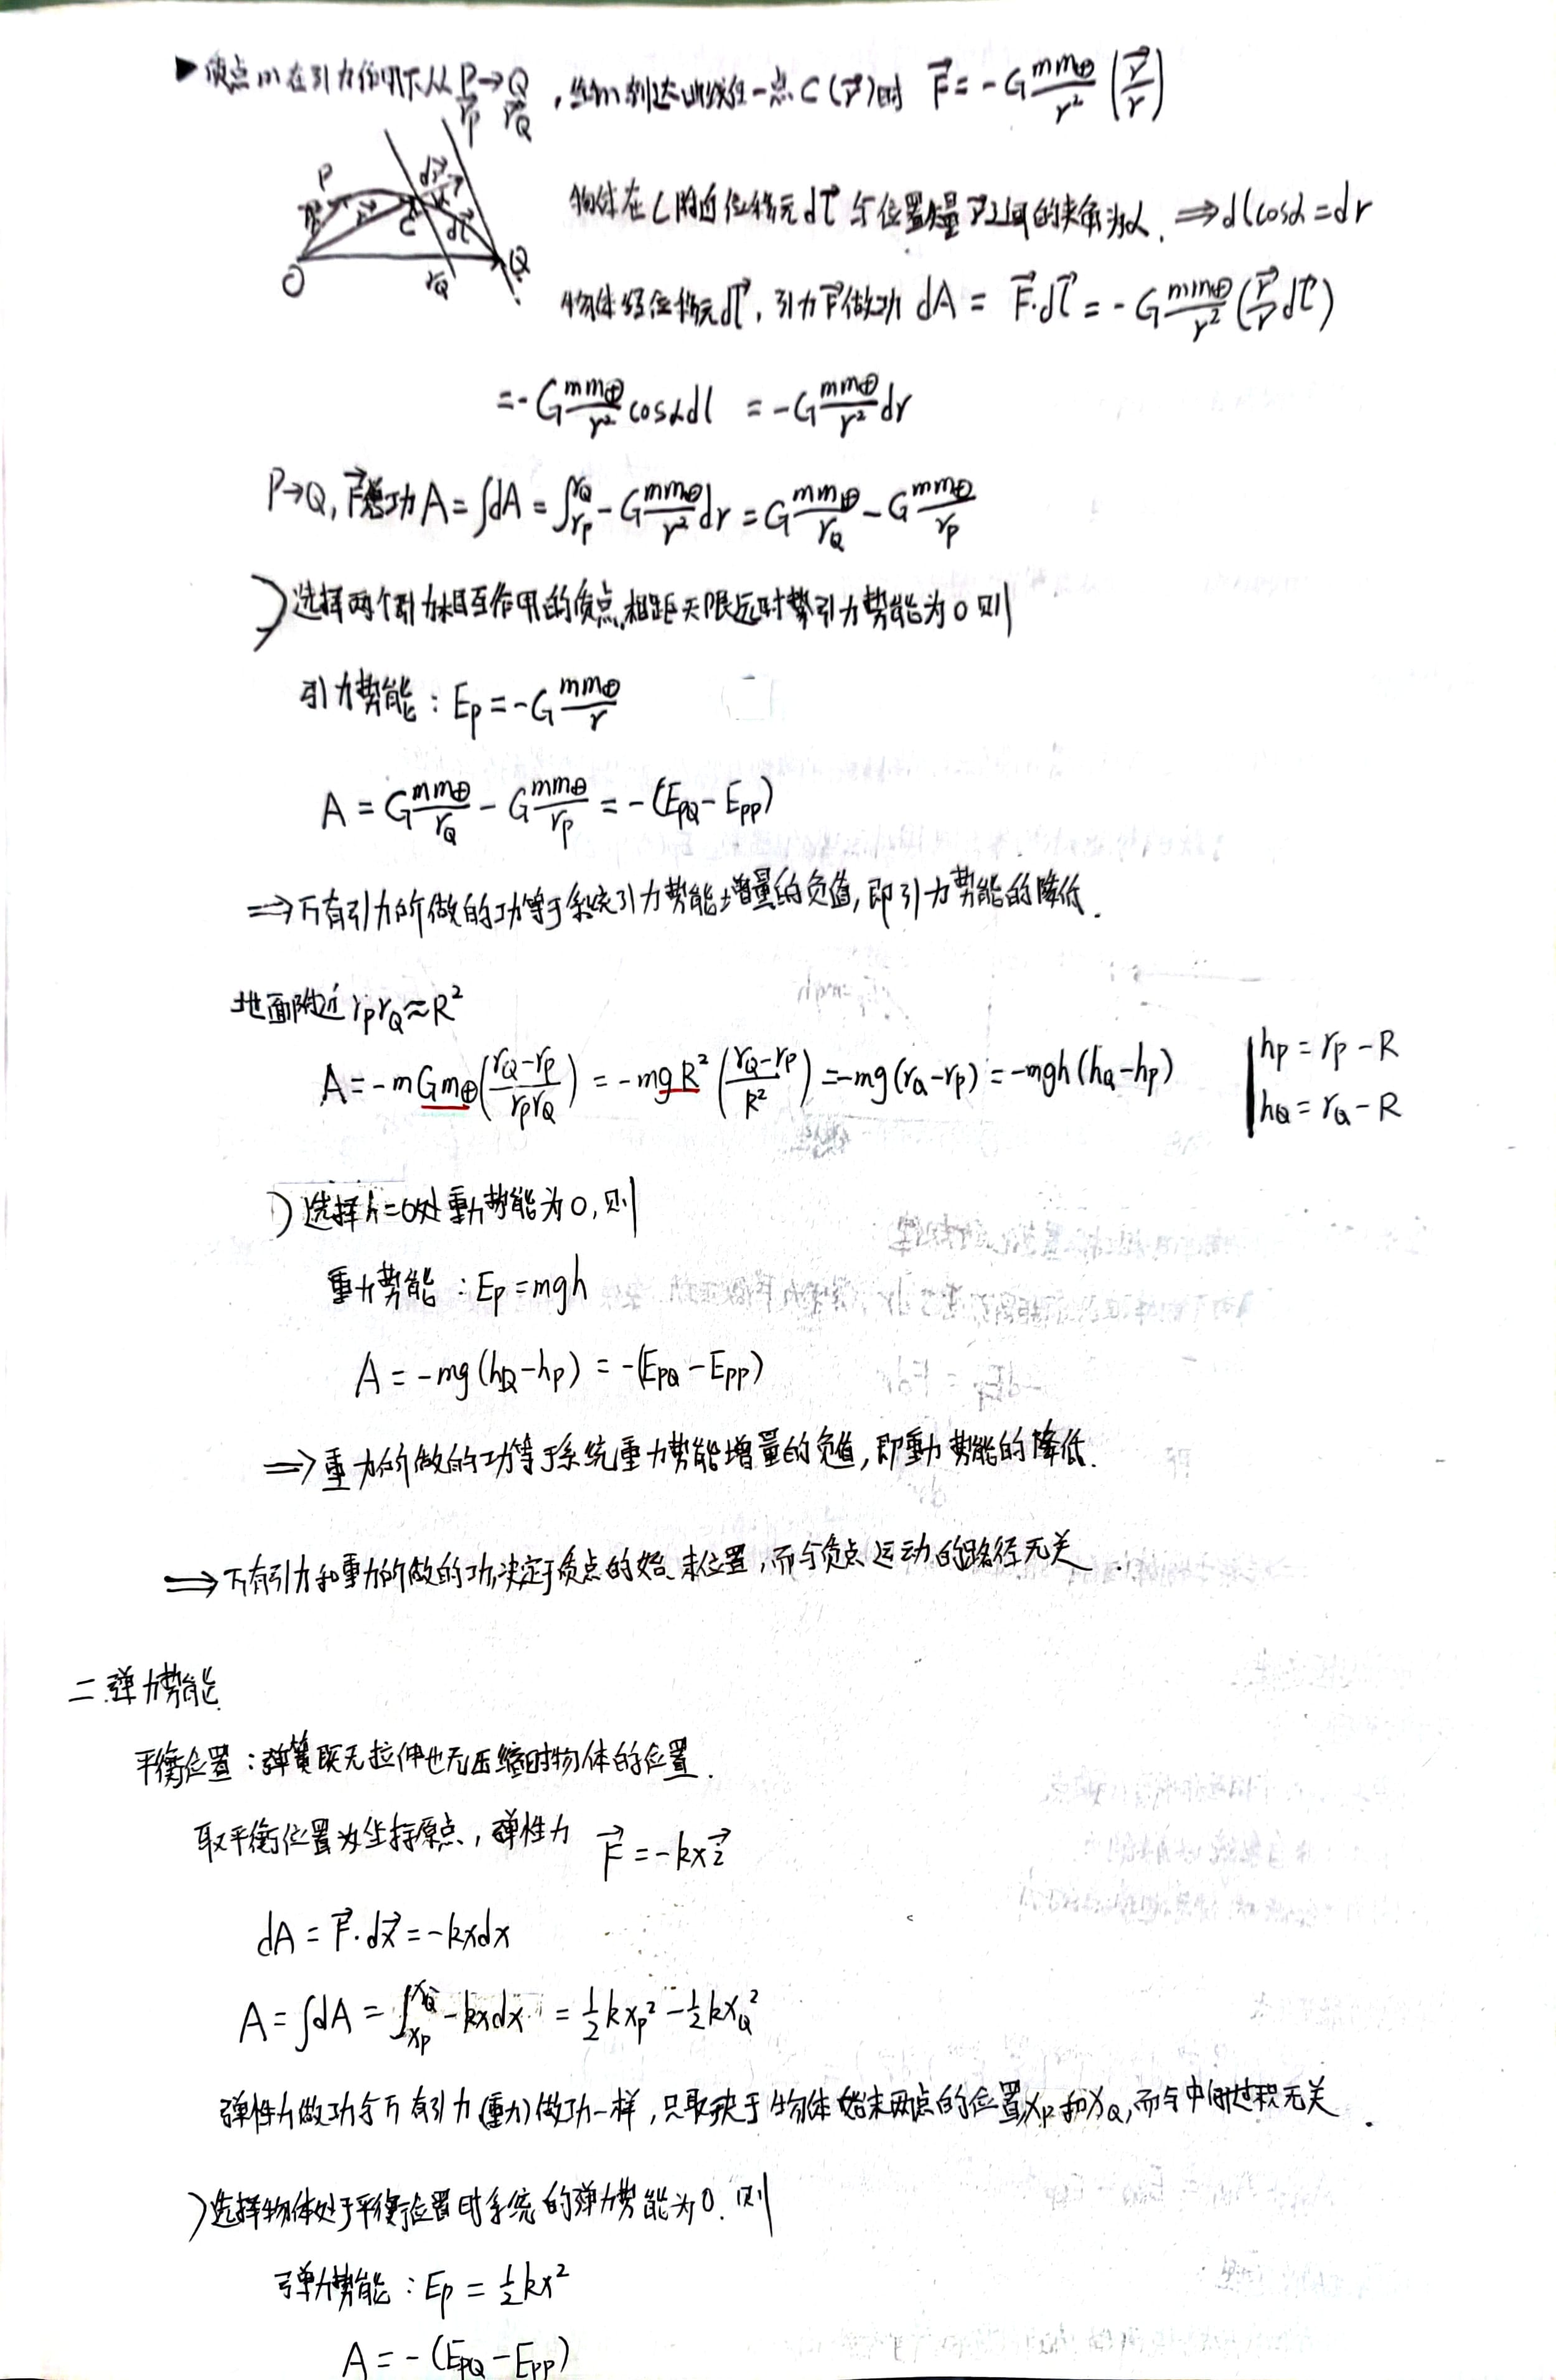 ▶质点m在引力作用下从P→Q，当m到达曲线任一点C(r⃗)时 F⃗=-G mm⊕/r² (r⃗/r)
r⃗p r⃗Q
P
C
dr⃗
α
dl⃗
O
rQ
Q
物体在C附近位移元dl⃗与位置矢量r⃗之间的夹角为α. ⇒dlcosα=dr
物体经位移元dl⃗, 引力F⃗做功 dA = F⃗·dl⃗ = -G mm⊕/r² (r⃗/r dl⃗)
=-G mm⊕/r² cosαdl =-G mm⊕/r² dr
P→Q, F⃗总功A=∫dA=∫_{rp}^{rQ} -G mm⊕/r² dr=G mm⊕/rQ -G mm⊕/rp
选择两个引力相互作用的质点相距无限远时引力势能为0则
引力势能: Ep=-G mm⊕/r
A=G mm⊕/rQ - G mm⊕/rp = -(EpQ-EpP)
⇒万有引力所做的功等于系统引力势能增量的负值, 即引力势能的降低.
地面附近 rprQ≈R²
A=-mGm⊕((rQ-rp)/(rprQ)) = -mgR²((rQ-rp)/R²) =-mg(rQ-rp)=-mgh(hQ-hp)
hp=rp-R
hQ=rQ-R
选择h=0处重力势能为0, 则
重力势能: Ep=mgh
A=-mg(hQ-hp)=-(EpQ-EpP)
⇒重力所做的功等于系统重力势能增量的负值, 即重力势能的降低.
⇒万有引力和重力所做的功,决定于质点的始、末位置, 而与质点运动的路径无关.
二.弹力势能
平衡位置:弹簧既无拉伸也无压缩时物体的位置.
取平衡位置为坐标原点, 弹性力 F⃗=-kxi⃗
dA=F⃗·dx⃗=-kxdx
A=∫dA=∫_{xp}^{xQ} -kxdx = ½kxp²-½kxQ²
弹性力做功与万有引力(重力)做功一样, 只取决于物体始末两点的位置xp和xQ, 而与中间过程无关.
选择物体处于平衡位置时系统的弹力势能为0. 则
弹力势能: Ep=½kx²
A=-(EpQ-EpP)